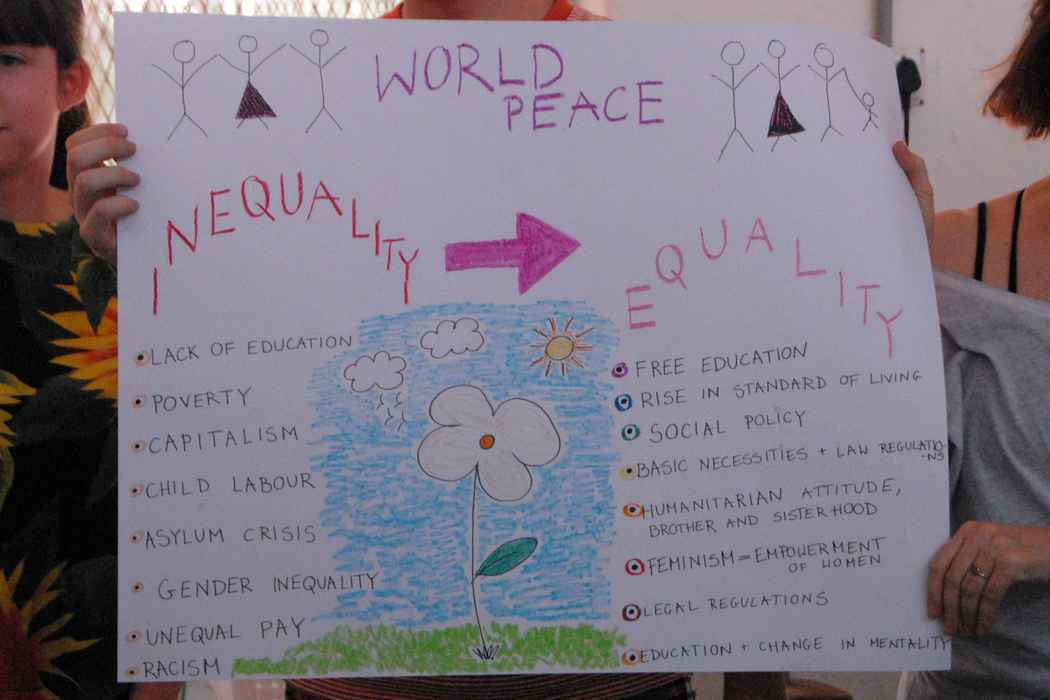 WORLD
PEACE
INEQUALITY
EQUALITY
LACK OF EDUCATION
POVERTY
CAPITALISM
CHILD LABOUR
ASYLUM CRISIS
GENDER INEQUALITY
UNEQUAL PAY
RACISM
FREE EDUCATION
RISE IN STANDARD OF LIVING
SOCIAL POLICY
BASIC NECESSITIES + LAW REGULATIO-
-NS
HUMANITARIAN ATTITUDE,
BROTHER AND SISTERHOOD
FEMINISM = EMPOWERMENT
OF WOMEN
LEGAL REGULATIONS
EDUCATION + CHANGE IN MENTALITY